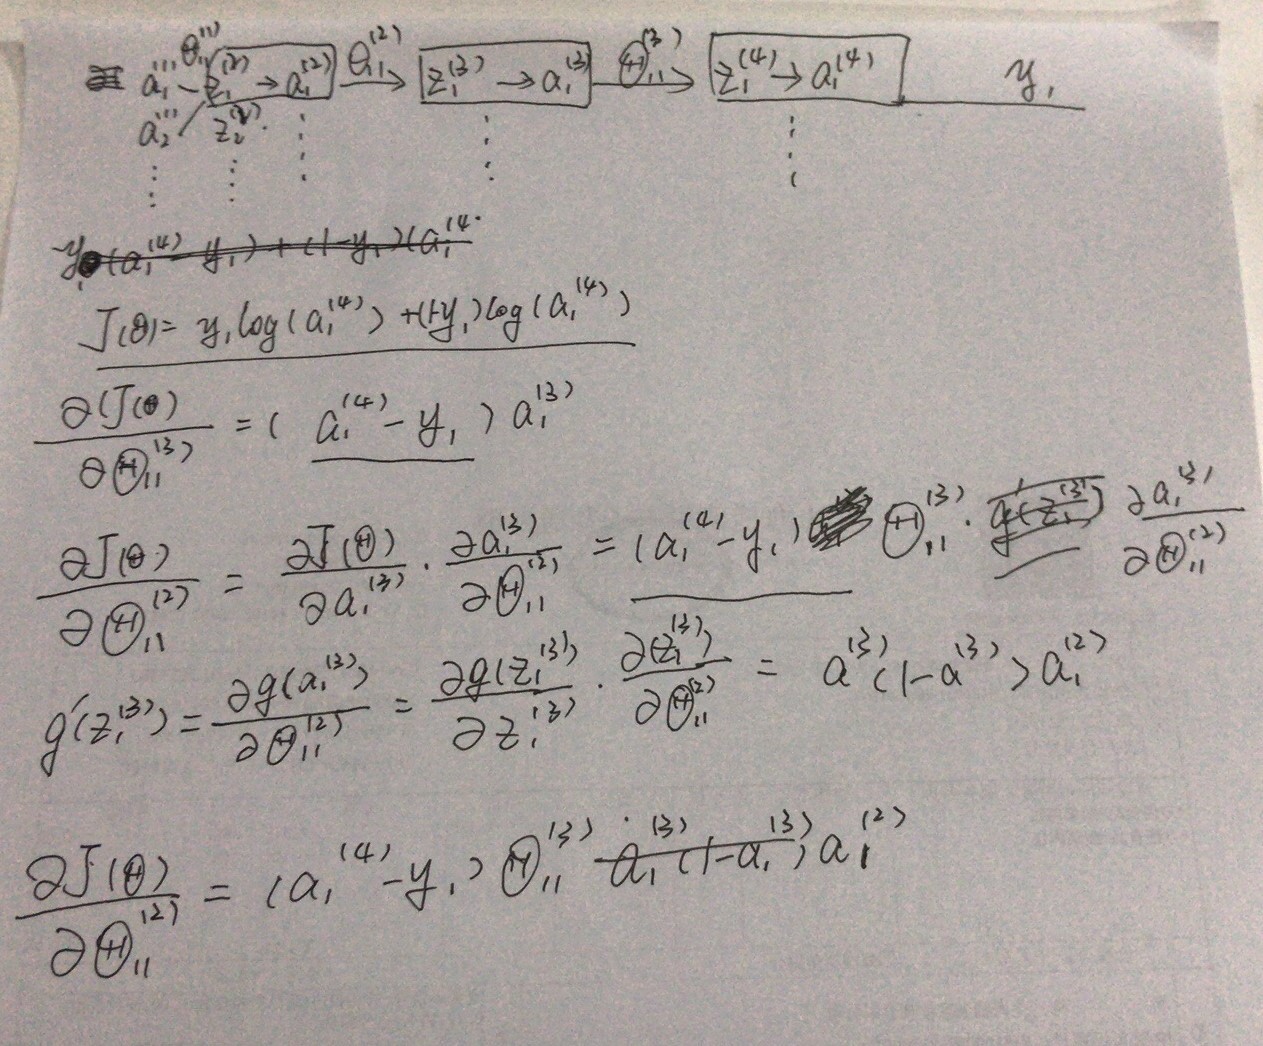 a₁⁽¹⁾ Θ₁₁⁽¹⁾ z₁⁽²⁾ → a₁⁽²⁾ Θ₁₁⁽²⁾ → z₁⁽³⁾ → a₁⁽³⁾ Θ₁₁⁽³⁾ → z₁⁽⁴⁾ → a₁⁽⁴⁾ y₁
a₂⁽¹⁾ z₂⁽²⁾
y₁(a₁⁽⁴⁾ - y₁) + (1-y₁)(a₁⁽⁴
J(θ) = y₁log(a₁⁽⁴⁾) + (1-y₁)log(a₁⁽⁴⁾)
∂(J(θ) / ∂Θ₁₁⁽³⁾ = (a₁⁽⁴⁾ - y₁) a₁⁽³⁾
∂J(θ) / ∂Θ₁₁⁽²⁾ = ∂J(θ) / ∂a₁⁽³⁾ · ∂a₁⁽³⁾ / ∂Θ₁₁⁽²⁾ = (a₁⁽⁴⁾ - y₁) Θ₁₁⁽³⁾ · g'(z₁⁽³⁾) ∂a₁⁽³⁾ / ∂Θ₁₁⁽²⁾
g'(z₁⁽³⁾) = ∂g(a₁⁽³⁾) / ∂Θ₁₁⁽²⁾ = ∂g(z₁⁽³⁾) / ∂z₁⁽³⁾ · ∂(z₁⁽³⁾) / ∂Θ₁₁⁽²⁾ = a⁽³⁾(1-a⁽³⁾)a₁⁽²⁾
∂J(θ) / ∂Θ₁₁⁽²⁾ = (a₁⁽⁴⁾ - y₁) Θ₁₁⁽³⁾ · a₁⁽³⁾(1-a₁⁽³⁾)a₁⁽²⁾